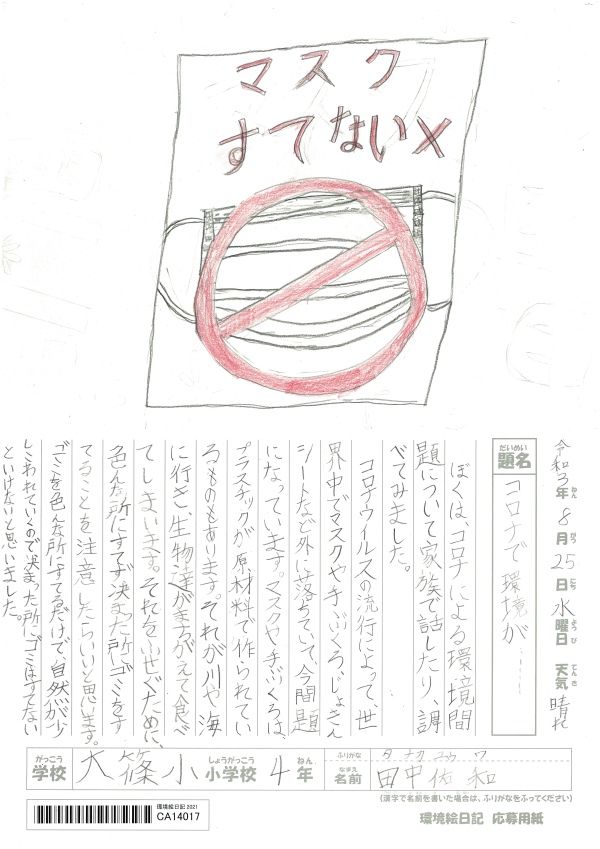 マスク
すてない×
令和3年8月25日水曜日 天気晴れ
ねん がつ にち ようび てんき
だいめい
題名 コロナで環境が……
ぼくは、コロナによる環境間
題について家族で話したり、調
べてみました。
コロナウイルスの流行によって、世
界中でマスクや手ぶくろ、じょきん
シートなど外に落ちていて、今問題
になっています。マスクや手ぶくろは、
プラスチックが原材料で作られてい
るものもあります。それが川や海
に行き、生物達がまちがえて食べ
てしまいます。それをふせぐために、
色んな所にすてず決まった所にゴミをす
てることを注意したらいいと思います。
ゴミを色んな所にすてるだけで、自然が少
しこわれていくので決まった所にゴミはすてない
といけないと思いました。
がっこう しょうがっこう ねん
学校 大篠小 小学校 4年
ふりがな タナカユウワ
なまえ
名前 田中佑和
(漢字で名前を書いた場合は、ふりがなをふってください)
環境絵日記 2021
CA14017
環境絵日記 応募用紙